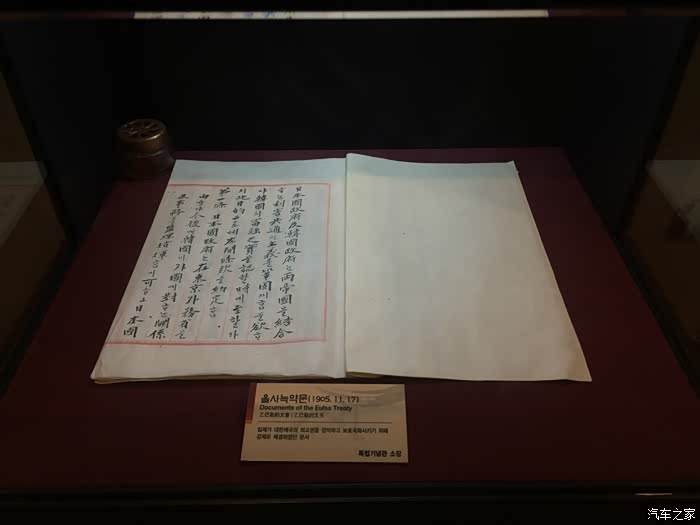 日本國政府及韓國政府ᄂᆞᆫ兩帝國을結合
ᄒᆞᄂᆞᆫ利害共通의主義를鞏固케ᄒᆞᆷ을欲ᄒᆞ
야韓國의富强之實을認ᄒᆞᆯ時에至ᄒᆞᆯ가
지此目的으로써左開條款을約定ᄒᆞᆷ.
第一條 日本國政府ᄂᆞᆫ在東京外務省을
由ᄒᆞ야今後에韓國이外國에對ᄒᆞᄂᆞᆫ關係
及事務를監理指揮ᄒᆞᆷ이可ᄒᆞ고日本國
을사늑약문(1905. 11. 17)
Documents of the Eulsa Treaty
乙巳勒約文書 | 乙巳勒約文
일제가 대한제국의 외교권을 강탈하고 보호국화시키기 위해
강제로 체결하였던 문서
독립기념관 소장
汽车之家